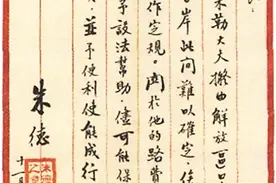 米勒大夫擬由解放區口
岸,此间難以確定,俟
作定規。関於他的路費
予設法幫助,儘可能保
、並予便利使能成行
朱德
十一月